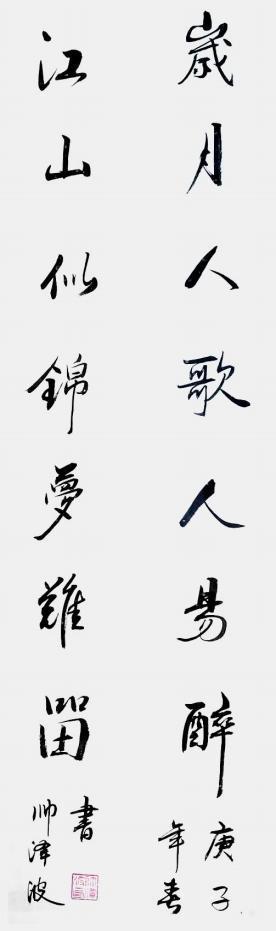 歲月人歌人易醉
庚子
年春
江山似錦夢難留
書
帅泽波